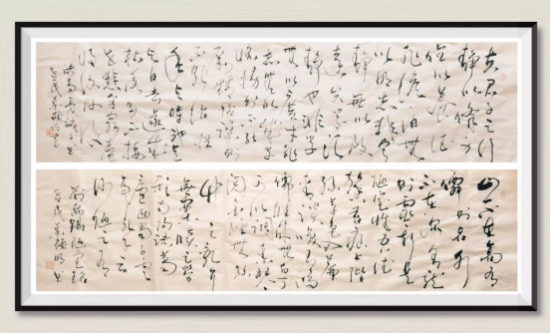 夫君子之行
静以修身
俭以养德
非澹泊无
以明志非宁
静无以致
远夫学须
静也才须
学也非学
无以广才非
志无以成学
不能治性
年与时驰意
与日去遂成
枯落多不接
世悲守穷庐
将复何及
诸葛亮
山不在高有
仙则名水
不在深有龙
则灵斯是
陋室惟吾德
馨苔痕上阶
绿草色入帘
青谈笑有鸿
儒往来无白丁
可以调素琴
阅金经无丝
竹之乱耳
无案牍之劳
形南阳诸葛
庐西蜀子云
亭孔子云
何陋之有
刘禹锡陋室铭